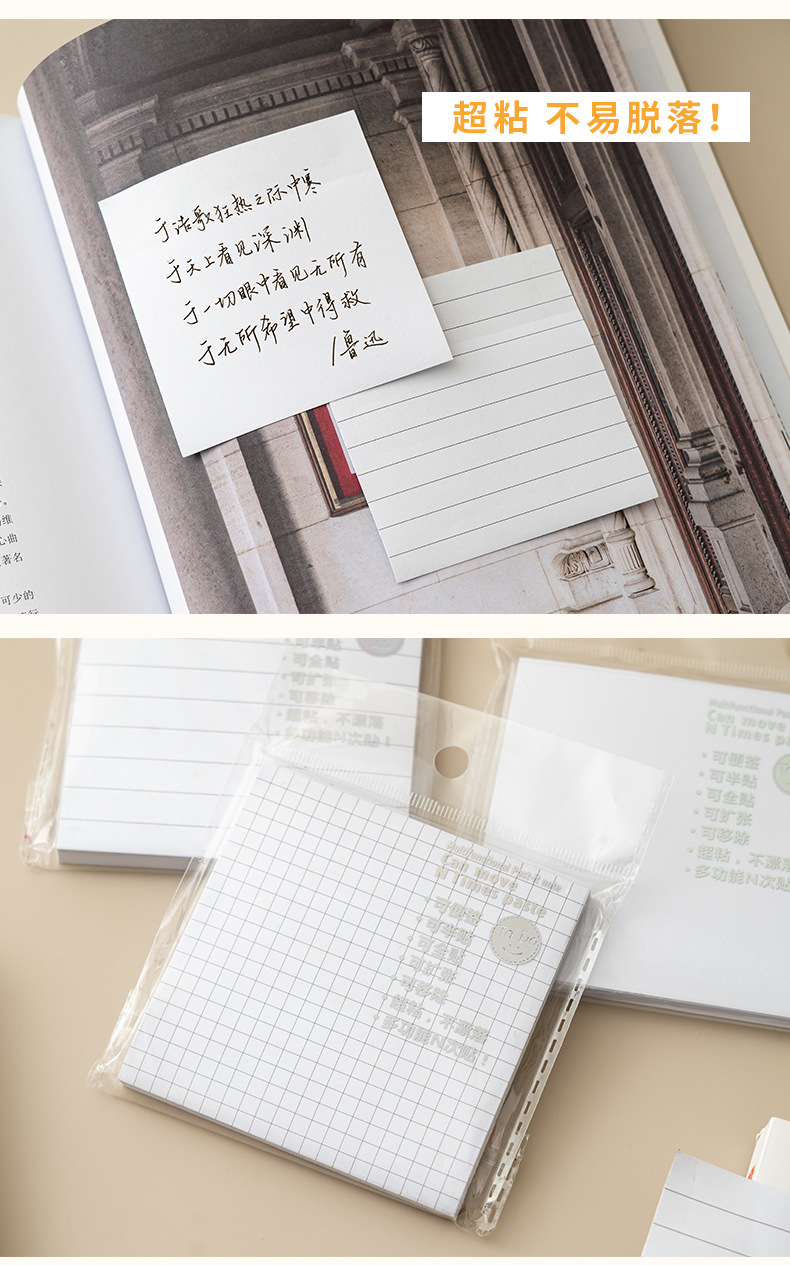 超粘 不易脱落!
于浩歌狂热之际中寒
于天上看见深渊
于一切眼中看见无所有
于无所希望中得救
/鲁迅
心曲
著名
可少的
·可半贴
·可全贴
·可扩张
·可移除
超粘，不漂落
多功能N次贴！
Multifunctional Pos
Can move
N Times pa
·可便签
·可半贴
·可全贴
·可扩张
·可移除
·超粘，不漂落
·多功能N次贴
Multifunctional Post-it note
Can move
N Times paste
·可便签
·可半贴
·可全贴
·可扩张
·可移除
·超粘，不漂落
·多功能N次贴！